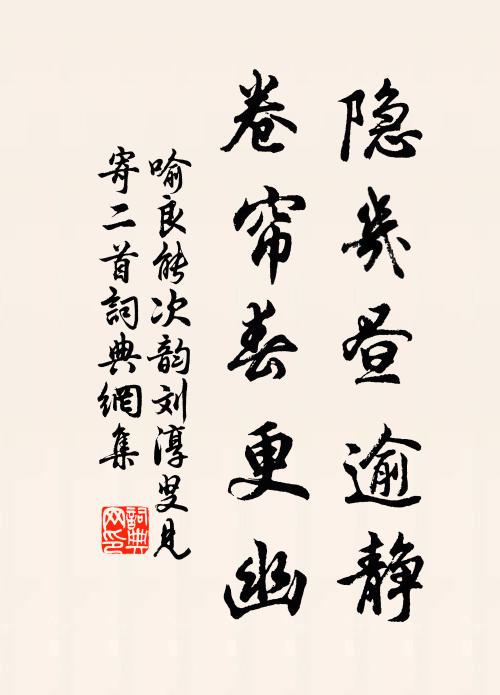 隐几昼逾静
卷帘春更幽
喻良能次韵刘淳叟见
寄二首詞典網集
詞典
网印